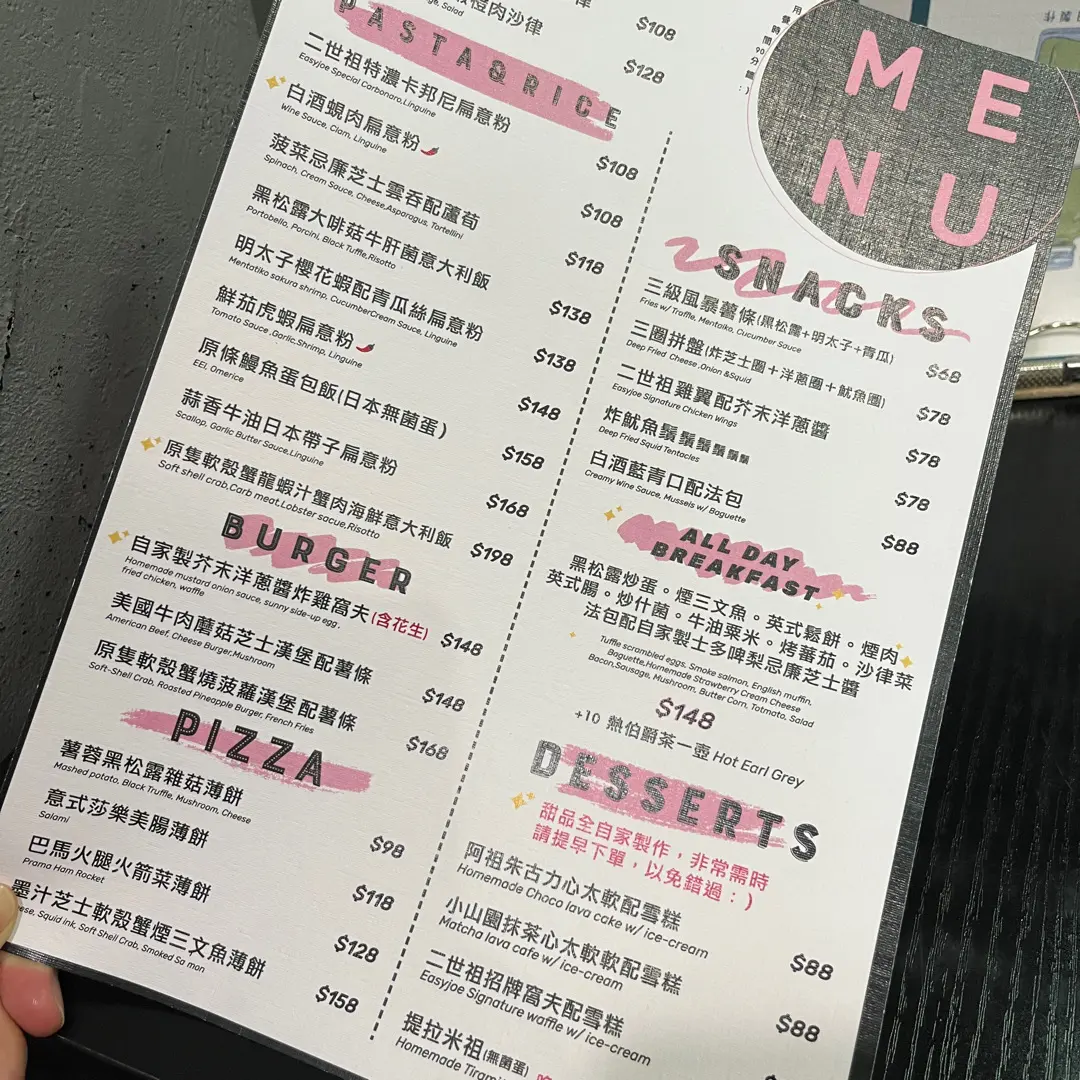 橙肉沙律
Salad
$108
$128
PASTA & RICE
二世祖特濃卡邦尼扁意粉
Easyjoe Special Carbonara,Linguine
$108
白酒蜆肉扁意粉
Wine Sauce, Clam, Linguine
$108
菠菜忌廉芝士雲吞配蘆荀
Spinach, Cream Sauce, Cheese,Asparagus, Tortellini
$118
黑松露大啡菇牛肝菌意大利飯
Portobello, Porcini, Black Tuffle,Risotto
$138
明太子櫻花蝦配青瓜絲扁意粉
Mentatiko sakura shrimp, CucumberCream Sauce, Linguine
$138
鮮茄虎蝦扁意粉
Tomato Sauce ,Garlic,Shrimp, Linguine
$148
原條鰻魚蛋包飯(日本無菌蛋)
EEl, Omerice
$158
蒜香牛油日本帶子扁意粉
Scallop, Garlic Butter Sauce,Linguine
$168
原隻軟殼蟹龍蝦汁蟹肉海鮮意大利飯
Soft shell crab,Carb meat,Lobster sacue,Risotto
$198
BURGER
自家製芥末洋蔥醬炸雞窩夫(含花生)
Homemade mustard onion sauce, sunny side-up egg ,
fried chicken, waffle
$148
美國牛肉蘑菇芝士漢堡配薯條
American Beef, Cheese Burger,Mushroom
$148
原隻軟殼蟹燒菠蘿漢堡配薯條
Soft-Shell Crab, Roasted Pineapple Burger, French Fries
$168
PIZZA
薯蓉黑松露雜菇薄餅
Mashed potato, Black Truffle, Mushroom, Cheese
$98
意式莎樂美腸薄餅
Salami
$118
巴馬火腿火箭菜薄餅
Prama Ham Rocket
$128
墨汁芝士軟殼蟹煙三文魚薄餅
ese, Squid ink, Soft Shell Crab, Smoked Sa mon
$158
MENU
SNACKS
三級風暴薯條(黑松露+明太子+青瓜)
Fries w/ Truffle, Mentaiko, Cucumber Sauce
$68
三圈拼盤(炸芝士圈+洋蔥圈+魷魚圈)
Deep Fried Cheese ,Onion &Squid
$78
二世祖雞翼配芥末洋蔥醬
Easyjoe Signature Chicken Wings
$78
炸魷魚鬚鬚鬚鬚鬚鬚
Deep Fried Squid Tentacles
$78
白酒藍青口配法包
Creamy Wine Sauce, Mussels w/ Baguette
$88
ALL DAY
BREAKFAST
黑松露炒蛋。煙三文魚。英式鬆餅。煙肉
英式腸。炒什菌。牛油粟米。烤蕃茄。沙律菜
法包配自家製士多啤梨忌廉芝士醬
Tuffle scrambled eggs, Smoke salmon, English muffin,
Baguette,Homemade Strawberry Cream Cheese
Bacon,Sausage, Mushroom, Butter Corn, Totmato, Salad
$148
+10 熱伯爵茶一壺 Hot Earl Grey
DESSERTS
甜品全自家製作，非常需時
請提早下單，以免錯過：)
阿祖朱古力心太軟配雪糕
Homemade Choco lava cake w/ ice-cream
$88
小山園抹茶心太軟軟配雪糕
Matcha lava cafe w/ ice-cream
$88
二世祖招牌窩夫配雪糕
Easyjoe Signature waffle w/ ice-cream
提拉米祖(無菌蛋)
Homemade